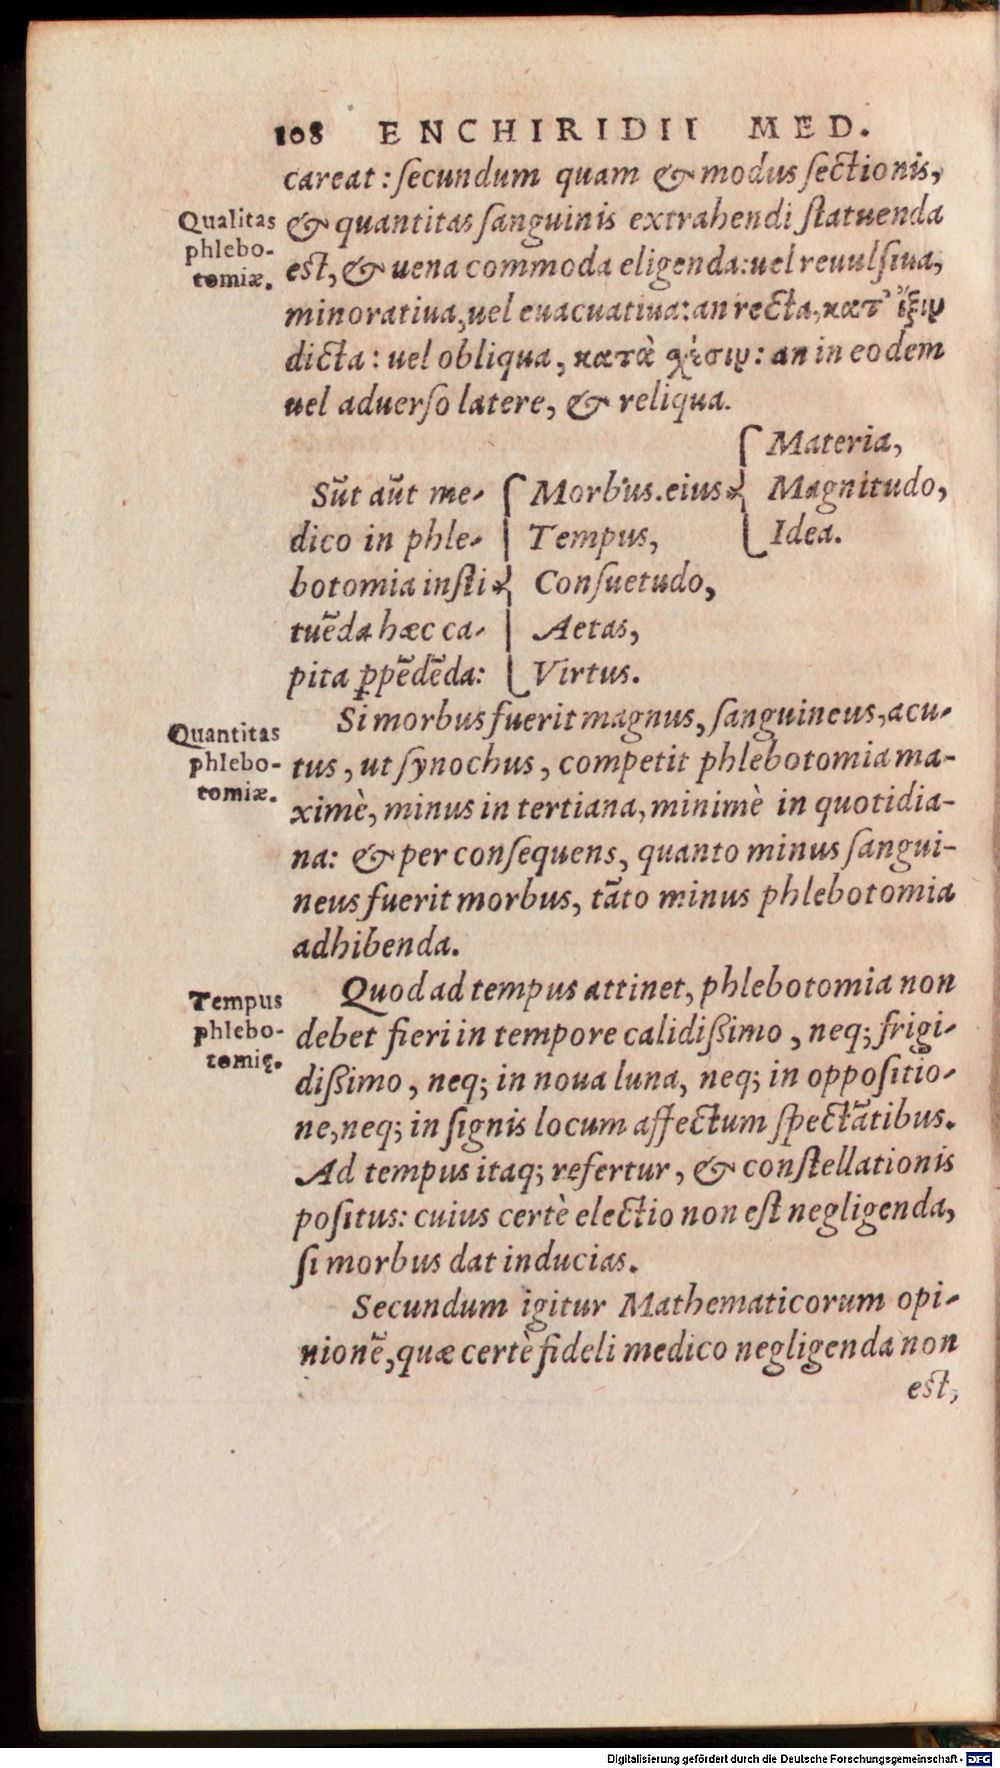 108 ENCHIRIDII MED.
careat: ſecundum quam & modus ſectionis,
Qualitas
phlebo-
tomiæ.
& quantitas ſanguinis extrahendi ſtatuenda
eſt, & uena commoda eligenda: uel reuulſiua,
minoratiua, uel euacuatiua: an recta, κατ' ἴξιν
dicta: uel obliqua, κατὰ χέσιν: an in eodem
uel aduerſo latere, & reliqua.
Sūt aūt me-
dico in phle-
botomia inſti
tuēda hæc ca-
pita ꝑpēdēda:
Morbus. eius
Materia,
Magnitudo,
Idea.
Tempus,
Conſuetudo,
Aetas,
Virtus.
Quantitas
phlebo-
tomiæ.
Si morbus fuerit magnus, ſanguineus, acu-
tus, ut ſynochus, competit phlebotomia ma-
ximè, minus in tertiana, minimè in quotidia-
na: & per conſequens, quanto minus ſangui-
neus fuerit morbus, tāto minus phlebotomia
adhibenda.
Tempus
phlebo-
tomię.
Quod ad tempus attinet, phlebotomia non
debet fieri in tempore calidißimo, neq; frigi-
dißimo, neq; in noua luna, neq; in oppoſitio-
ne, neq; in ſignis locum affectum ſpectātibus.
Ad tempus itaq; refertur, & conſtellationis
poſitus: cuius certè electio non eſt negligenda,
ſi morbus dat inducias.
Secundum igitur Mathematicorum opi-
nionē, quæ certè fideli medico negligenda non
eſt,
Digitalisierung gefördert durch die Deutsche Forschungsgemeinschaft - DFG